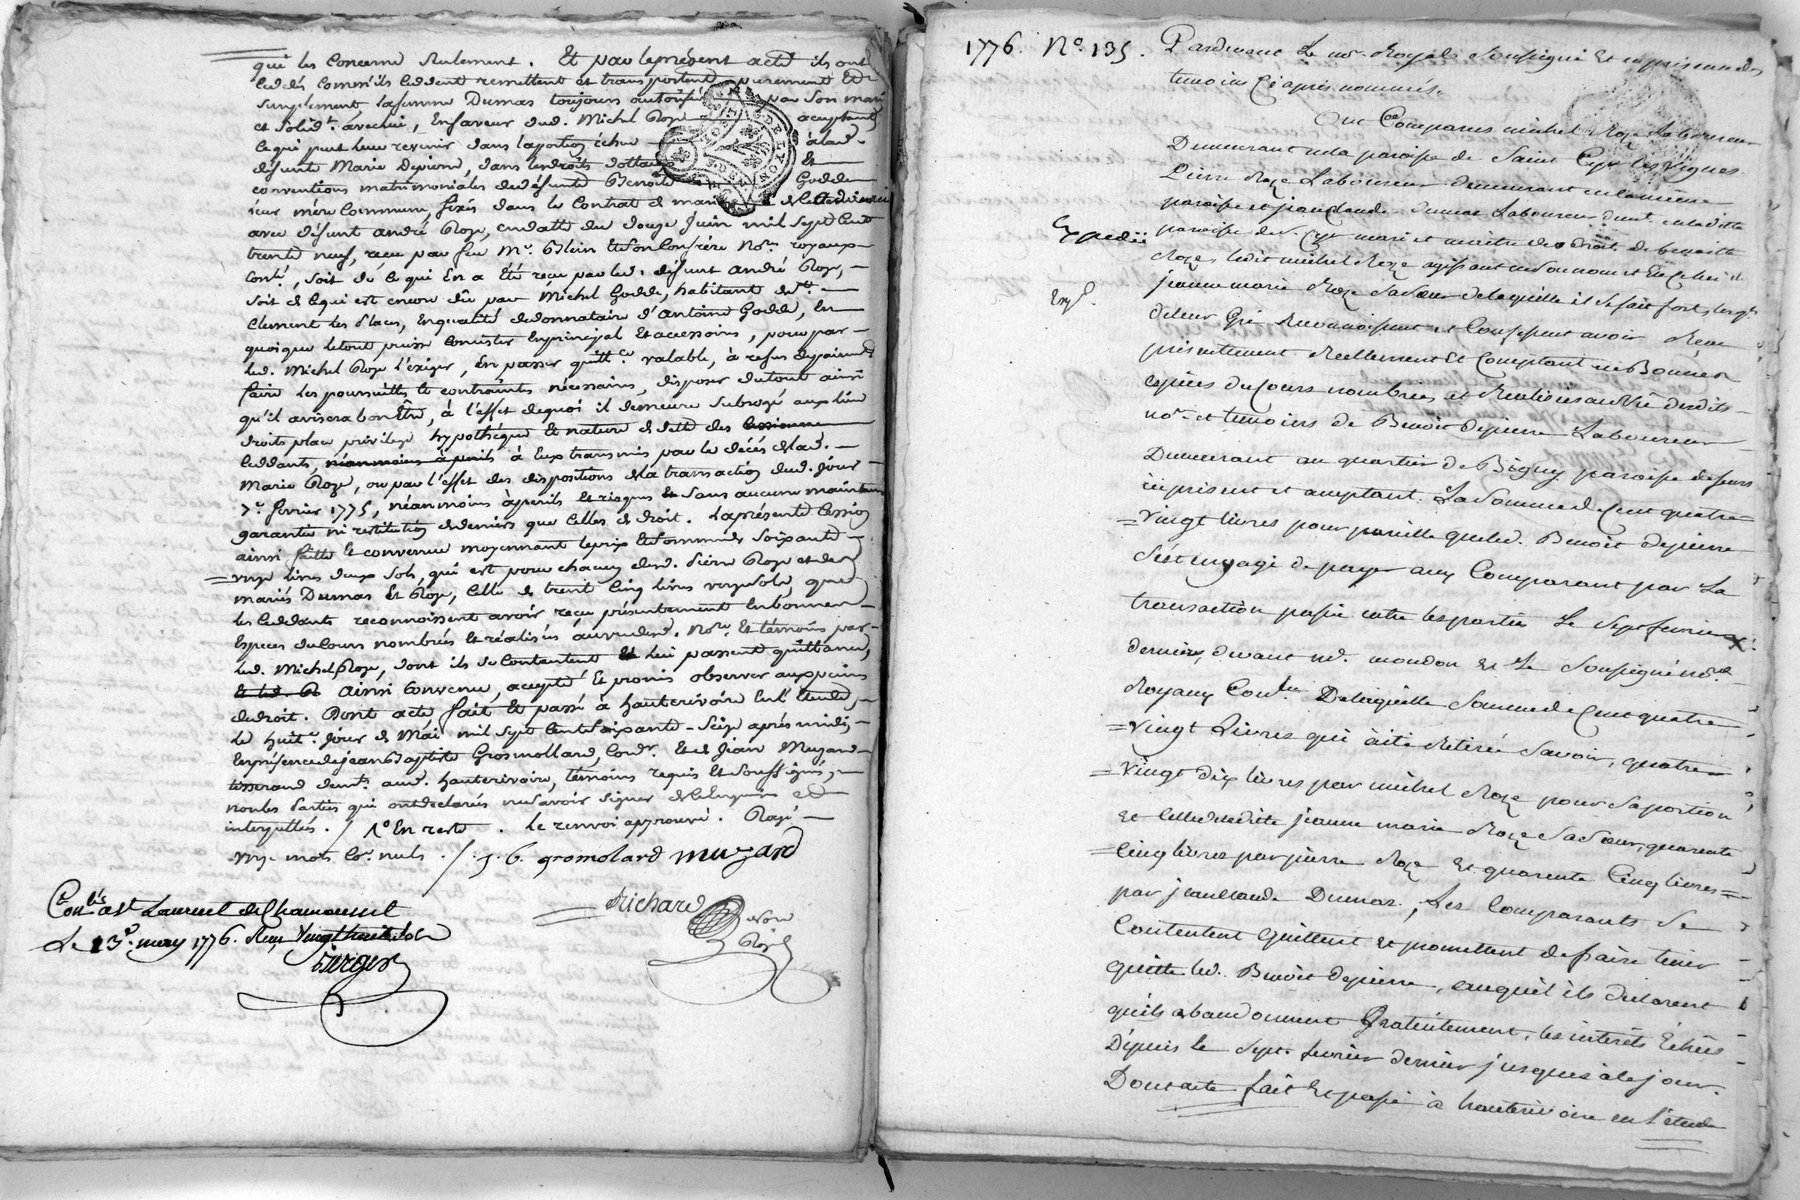 qui les concerne seulement. Et par le présent acte ils ont
cédés comm'ils cèddent remettent et transportent purement et
simplement la femme Dumas toujours autorisé par son mari
et solid.t avec lui, En faveur dud. Michel Roze acceptant
ce qui peut leur revenir dans la portion échue à lad.
défunte Marie Depierre, dans les droits dottaux Et
conventions matrimoniales de défunte Benoite Godde
leur mère Commune, fixés dans le Contrat de mariage
avec défunt andré Roze, en datte du douze Juin mil sept Cent
trente neuf, reçu par feu M.e Blein Et son Confrère No.res royaux
soit de ce qui En a Eté reçu par led. défunt andré Roze,
soit de ce qui est encore dû par Michel Godde, habitant de S.t
Clement les places, En qualité de donnataire d'Antoine Godde, En
quoique le tout puisse Consister En principal Et accessoires, pour par
led. Michel Roze l'exiger, En passer quitt.ce valable, à refus de paiement
faire les poursuittes et contraintes nécessaires, disposer du tout ainsi
qu'il avisera bon Etre, à l'effet de quoi il demeure subrogé aux lieu
droits place privilege hypothéque Et nature de dette des
Ceddants, néanmoins à périls à Eux transmis par le décés de lad.
Marie Roze, ou par l'effet des dispositions de la transaction dud. Jour
7.e février 1775, néanmoins à périls et risques Et sans aucune maintenue
garantie ni restitution de deniers que Celles de droit. La présente Cession
ainsi faitte Et convenue moyennant le prix Et somme de soixante
onze livres deux sols, qui est pour chacun desd. Pierre Roze et des
mariés Dumas Et Roze, Celle de trente Cinq livres onze sols, que
les Ceddants reconnoissent avoir reçu présentement En bonnes
Especes du Cours nombrés Et réalisés au vu desd. No.re Et témoins par
led. Michel Roze, dont ils se Contentent Et lui passent quittance,
ainsi Convenu, accepté Et promis observer aux peines
de droit. Dont acte, fait Et passé à hauterivoire En l'Etude,
le huit.e Jour de Mai mil sept Cent soixante-seize après midi,
En présence de jean Baptiste Grosmolland, Cord.r Et de Jean Muzard
tisserand dem.ts aud. hauterivoire, témoins requis Et soussignés,
non les Parties qui ont declarées ne savoir signer de Ce Enquises et
interpellés. / 1.o En reste. le renvoi approuvé. Rayé
onze mots Co.e nuls. /. j. b. gromolard muzard
Con.lé a St Laurent de Chamousset
Le 13.e may 1776. Reçu Vingt huit sols
Richard
1776. N.o 135. Pardevant Le no.re Royal Soussigné Et en présence des
temoins Ci après nommés.
Ont Comparus michel Roze Laboureur
Demeurant en la paroisse de Saint Cyr les Vignes
Pierre Roze Laboureur demeurant en la même
paroisse et jean Claude dumas Laboureur dem.t en la ditte
Expedié
paroisse de S.t Cyr mari et maitre des droits de benoitte
Roze, ledit michel Roze agissant en son nom et En Celui de
jeanne marie Roze sa sœur de laquelle il se fait fort, lesq.ls
de leur Gré Reconnoissent et Confessent avoir Reçu
présentement Réellement Et Comptant en Bonnes
espèces du Cours nombrées et Réalisées au Vû desdits
no.re et temoins de Benoit depierre Laboureur
Demeurant au quartier de Bigny paroisse de feurs
ici présent et acceptant. La Somme de Cent quatre
Vingt livres pour pareille que led. Benoit depierre
s'est engagé de payer aux Comparant par La
transaction passée entre les parties Le sept fevrier
dernier, devant m.e mondon Et Le soussigné no.res
Royaux De laquelle Somme de Cent quatre
Vingt Livres qui à été Retirée Savoir, quatre
Vingt dix livres par michel Roze pour sa portion
et Celle de ladite jeanne marie Roze sa sœur, quarente
Cinq livres par pierre Roze Et quarente Cinq livres
par jean Claude Dumas, Les Comparants se
Contentent Quittent Et promettent de faire tenir
Quitte led. Benoit depierre, auquel ils declarent
qu'ils abandonnent Gratuitement, les intérêts Echus
Depuis le sept fevrier dernier jusques à Ce jour.
Dont acte fait Et passé à hauterivoire en l'étude